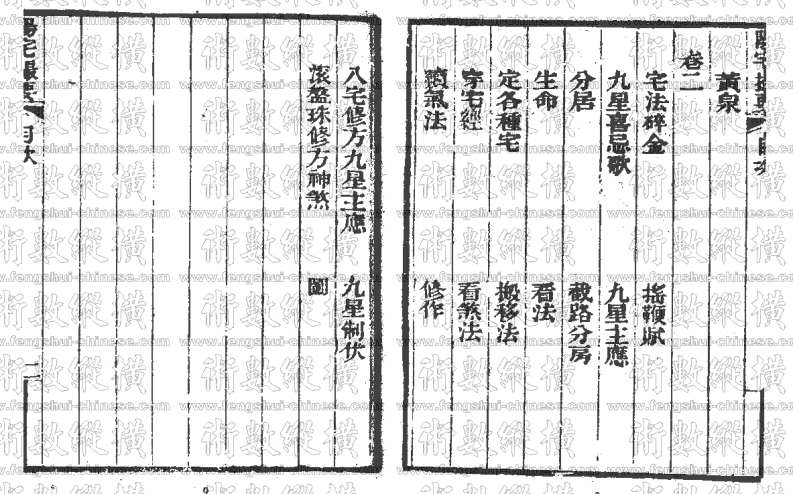 黃泉
卷二
宅法碎金 搖鞭賦
九星喜忌歌 九星主應
分居 截路分房
生命 看法
定各種宅 搬移法
穿宅經 看煞法
氣法 修作
八宅修方九星主應 九星制伏
滾盤珠修方神煞 圖
二
術數縱橫
www.fengshui-chinese.com